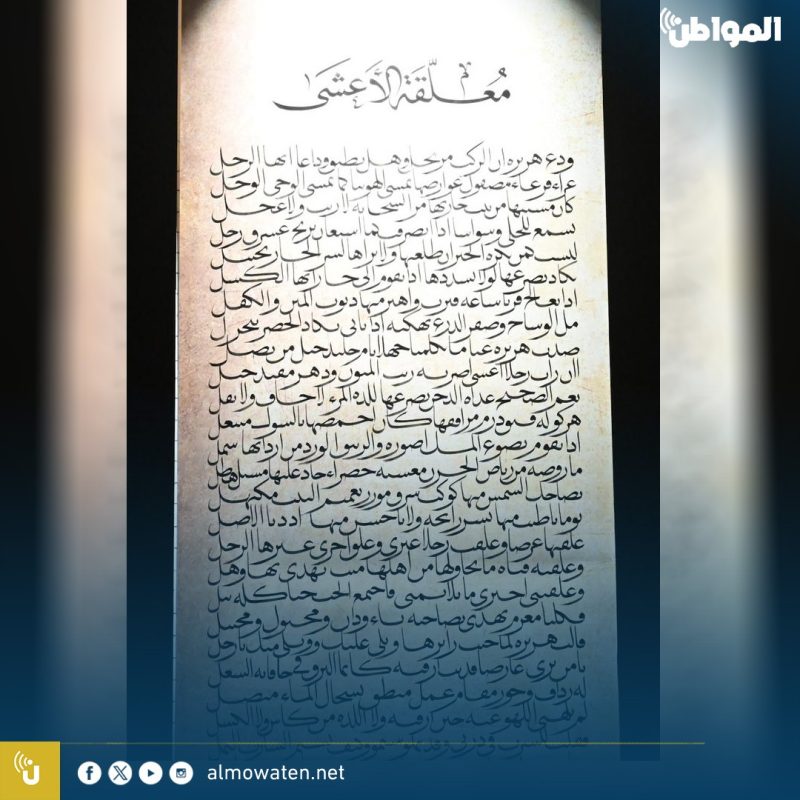 المواطن
معلّقة الأعشى
ودع هريره ان الركب مرتحل وهل تطيق وداعا ايها الرجل
غراء فرعاء مصقول عوارضها تمشي الهوينا كما يمشي الوجي الوحل
كان مشيتها من بيت جارتها مر السحابه لا ريث ولا عجل
تسمع للحلي وسواسا اذا انصرفت كما استعان بريح عشرق زجل
ليست كمن يكره الجيران طلعتها ولا تراها لسر الجار تختتل
يكاد يصرعها لولا تشددها اذا تقوم الى جاراتها الكسل
اذا تعالج قرنا ساعه فترت واهتز منها ذنوب المتن والكفل
مل الوشاح وصفر الدرع بهكنه اذا تاتى يكاد الخصر ينخزل
صدت هريره عنا ما تكلمنا جهلا بام خليد حبل من تصل
اان رات رجلا اعشى اضر به ريب المنون ودهر مفند خبل
نعم الضجيع غداه الدجن يصرعها للذه المرء لا جاف ولا تفل
هركوله فنق درم مرافقها كان اخمصها بالشوك منتعل
اذا تقوم يضوع المسك اصوره والزنبق الورد من اردانها شمل
ما روضه من رياض الحزن معشبه خضراء جاد عليها مسبل هطل
يضاحك الشمس منها كوكب شرق موزر بعميم النبت مكتهل
يوما باطيب منها نشر رائحه ولا باحسن منها اذ دنا الاصل
علقتها عرضا وعلقت رجلا غيري وعلق اخرى غيرها الرجل
وعلقته فتاه ما يحاولها من اهلها ميت يهذي بها وهل
وعلقتني اخيرى ما تلائمني فاجتمع الحب حبا كله تبل
فكلنا مغرم يهذي بصاحبه ناء ودان ومخبول ومختبل
قالت هريره لما جئت زائرها ويلي عليك وويلي منك يا رجل
يا من يرى عارضا قد بت ارقبه كانما البرق في حافاته الشعل
له رداف وجوز مفام عمل منطق بسجال الماء متصل
لم يلهني اللهو عنه حين ارقبه ولا اللذاذه من كاس ولا الكسل
فقلت للشرب في درنى وقد ثملوا
almowaten.net